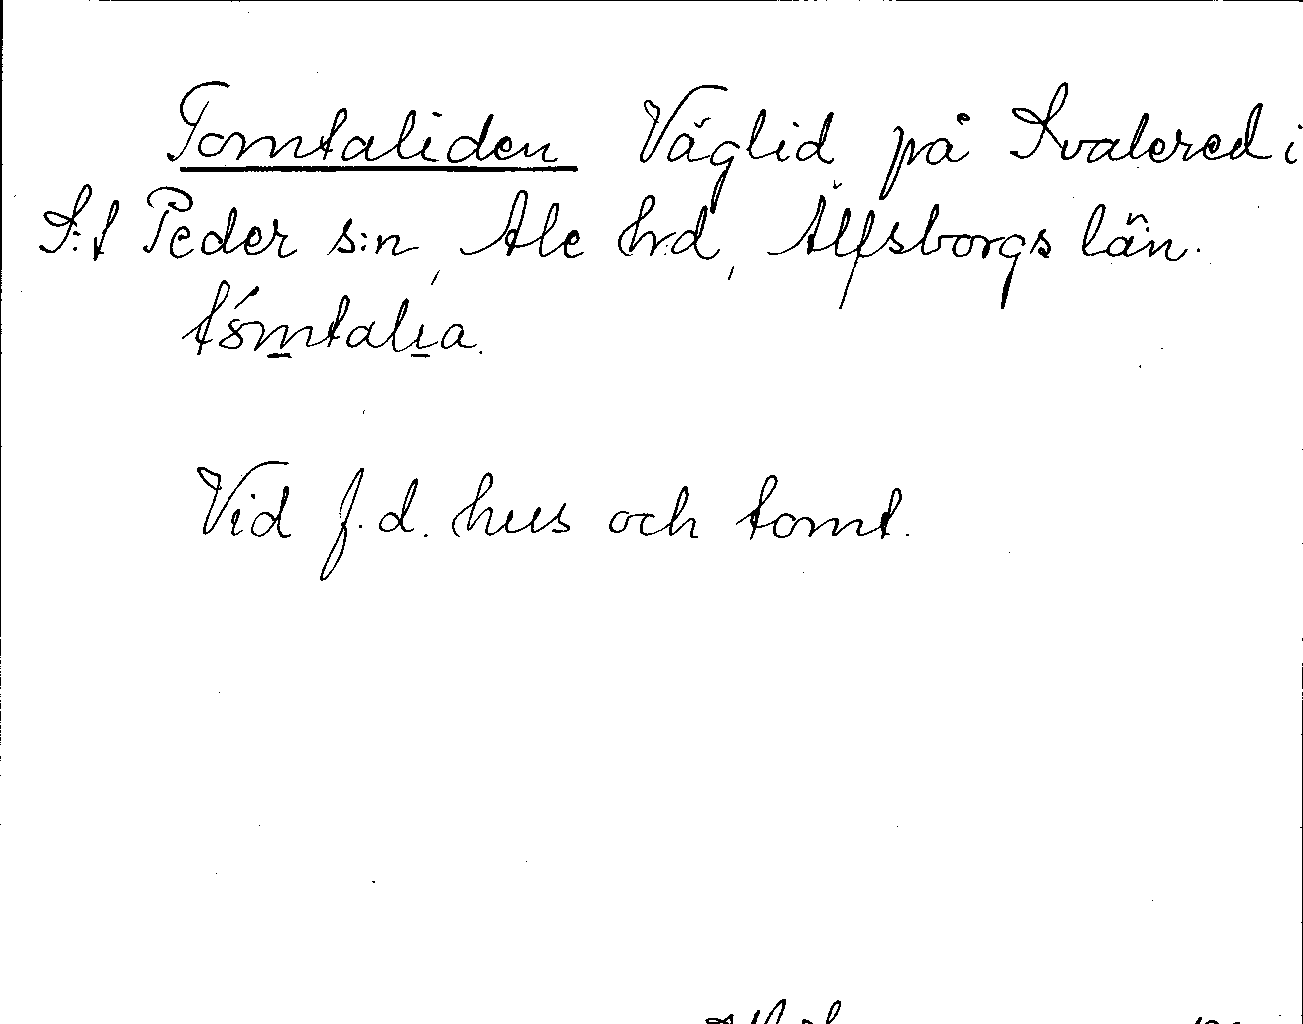 Tomtaliden Väglid på Svalered i
S:t Peder s:n, Ale hrd, Älfsborgs län.
tómtalıa.
Vid f.d. hus och tomt.